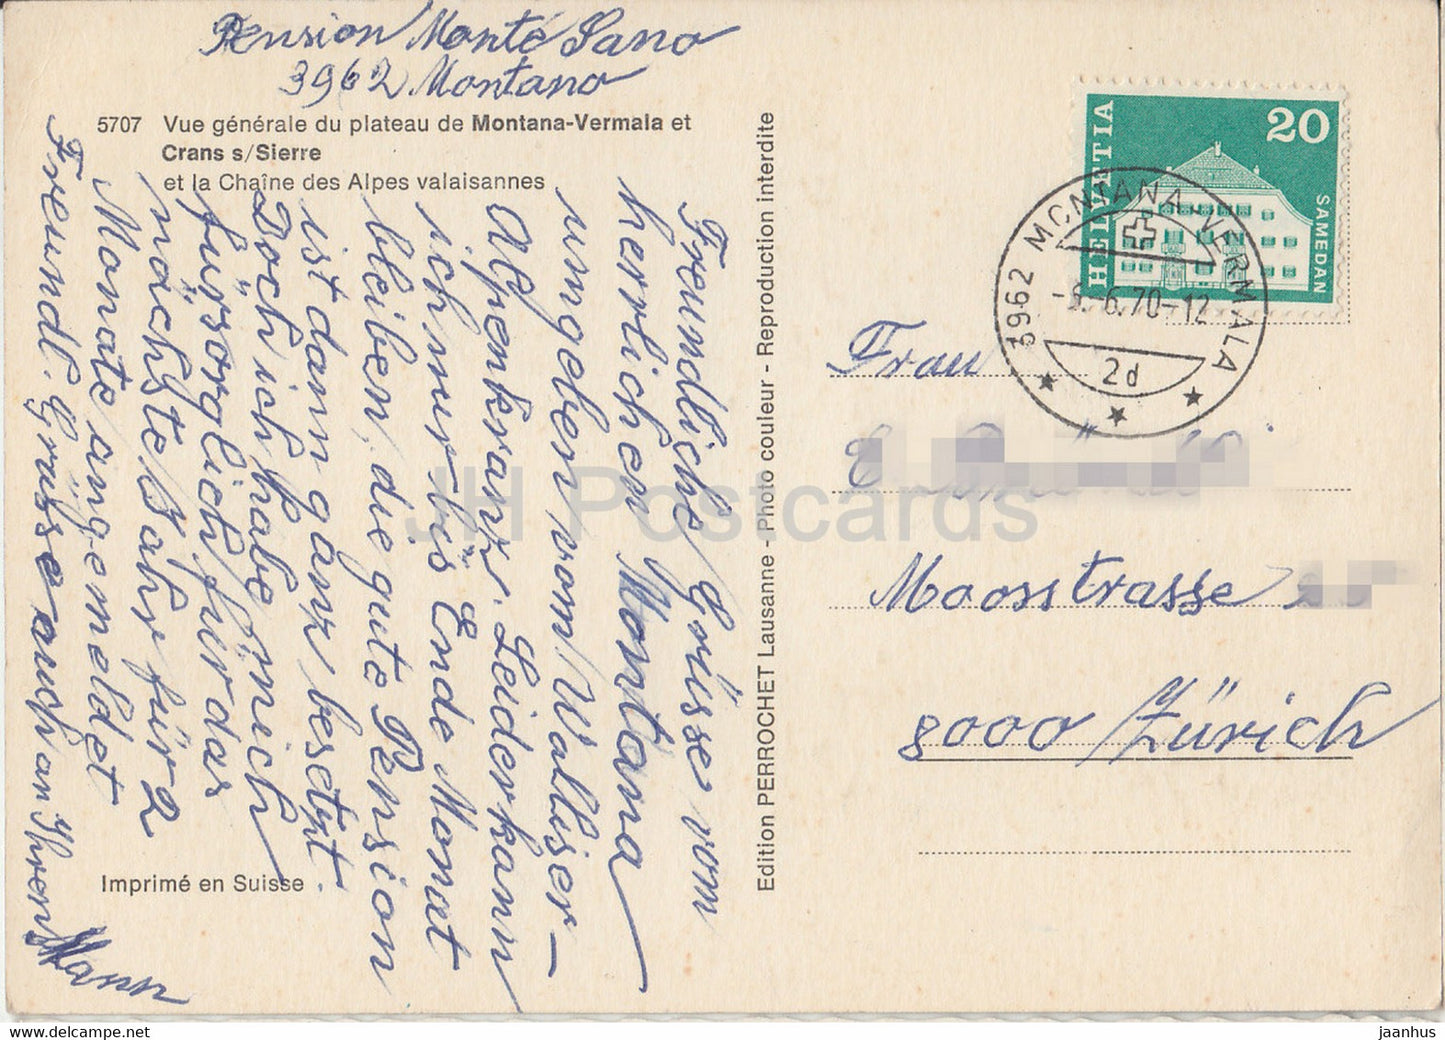 Pension Monté Sano
3962 Montano
5707 Vue générale du plateau de Montana-Vermala et
Crans s/Sierre
et la Chaîne des Alpes valaisannes
Freundliche Grüsse vom
herrlichen Montana
umgeben vom Walliser-
Alpenkranz. Leider kann
ich nur bis Ende Monat
bleiben, die gute Pension
ist dann ganz besetzt.
Doch ich habe mich
fürsorglich für das
nächste Jahr für 2
Monate angemeldet
Freundl. Grüsse auch an Ihren Mann
Imprimé en Suisse
Edition PERROCHET Lausanne - Photo couleur - Reproduction interdite
HELVETIA
20
SAMEDAN
3962 MONTANA-VERMALA
6.70-12
2d
Frau
Moosstrasse
8000 Zürich
JH Postcards
hippostcard.com
jaanhus